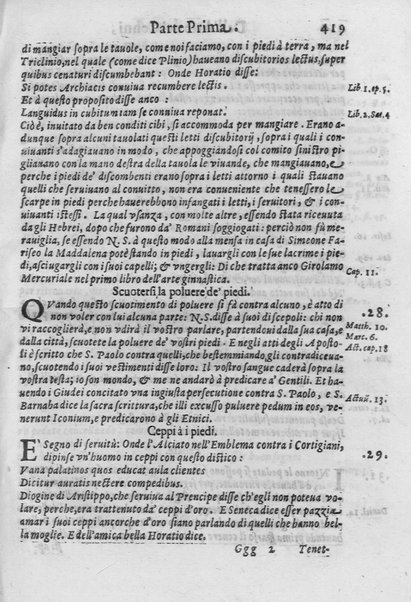 Parte Prima. 419
di mangiar sopra le tauole, come noi faciamo, con i piedi à terra, ma nel
Triclinio, nel quale (come dice Plinio) haueano discubitorios lectus, super
quibus cenaturi discumbebant: Onde Horatio disse:
Si potes Archiacis conuiua recumbere lectis. Lib. 1. ep. 5.
Et à questo proposito disse anco:
Languidus in cubitum iam se conuiua reponat. Lib. 2. Sat. 4
Cioè, inuitato da ben conditi cibi, si accommoda per mangiare. Erano a-
dunque sopra alcuni tauolati questi letti discubitorij, sopra i quali i con-
uiuanti s'adagiauano in modo, che appoggiandosi col comito sinistro pi-
glianano con la mano destra della tauola le viuande, che mangiauano, e
perche i piedi de' discombenti erano sopra i letti attorno i quali stauano
quelli che seruiuano al conuitto, non era conueniente che tenessero le
scarpe in piedi perche hauerebbono infangati i letti, i seruitori, & i con-
uiuanti istessi. La qual vsanza, con molte altre, essendo stata riceuuta
dagli Hebrei, dopo che furono da' Romani soggiogati: perciò non fù me-
rauiglia, se essendo N. S. à questo modo alla mensa in casa di Simeone Fa-
riseo la Maddalena potè stando in piedi, lauargli con le sue lacrime i pie-
di, asciugargli con i suoi capelli, & vngergli: Di che tratta anco Girolamo
Mercuriale nel primo libro dell'arte ginnastica. Cap. 11.
Scuotersi la poluere de' piedi.
QVando questo scuotimento di poluere si fà contra alcuno, è atto di .28.
non voler con lui alcuna parte: N.S. disse à suoi discepoli: chi non
vi raccoglierà, e non vdirà il vostro parlare, partendoui dalla sua casa, e Matth. 10.
dalla città, scuotete la poluere de' vostri piedi. E negli atti degli Aposto- Mart. 6.
li è scritto che S. Paolo contra quelli, che bestemmiando, gli contradiceua- Act. cap. 18
no, scuotendo i suoi vestimenti disse loro. Il vostro sangue caderà sopra la
vostra testa; io son mondo, & me ne andarò à predicare a' Gentili. Et ha-
uendo i Giudei concitato vna ingiusta persecutione contra S. Paolo, e S. Actuũ. 13.
Barnaba dice la sacra scrittura, che illi excusso puluere pedum in eos, ve-
nerunt Iconium, e predicarono à gli Etnici.
Ceppi à i piedi.
E' Segno di seruitù: Onde l'Alciato nell'Emblema contra i Cortigiani, .29.
dipinse vn'huomo in ceppi con questo distico:
Vana palatinos quos educat aula clientes
Dicitur auratis nectere compedibus.
Diogine di Aristippo, che seruiua al Prencipe disse ch'egli non poteua vo-
lare, perche, era trattenuto da' ceppi d'oro. E Seneca dice esser pazzia
amar i suoi ceppi ancorche d'oro siano parlando di quelli che hanno bel-
la moglie. E dell'amica bella Horatio dice.
Ggg 2 Tenet-